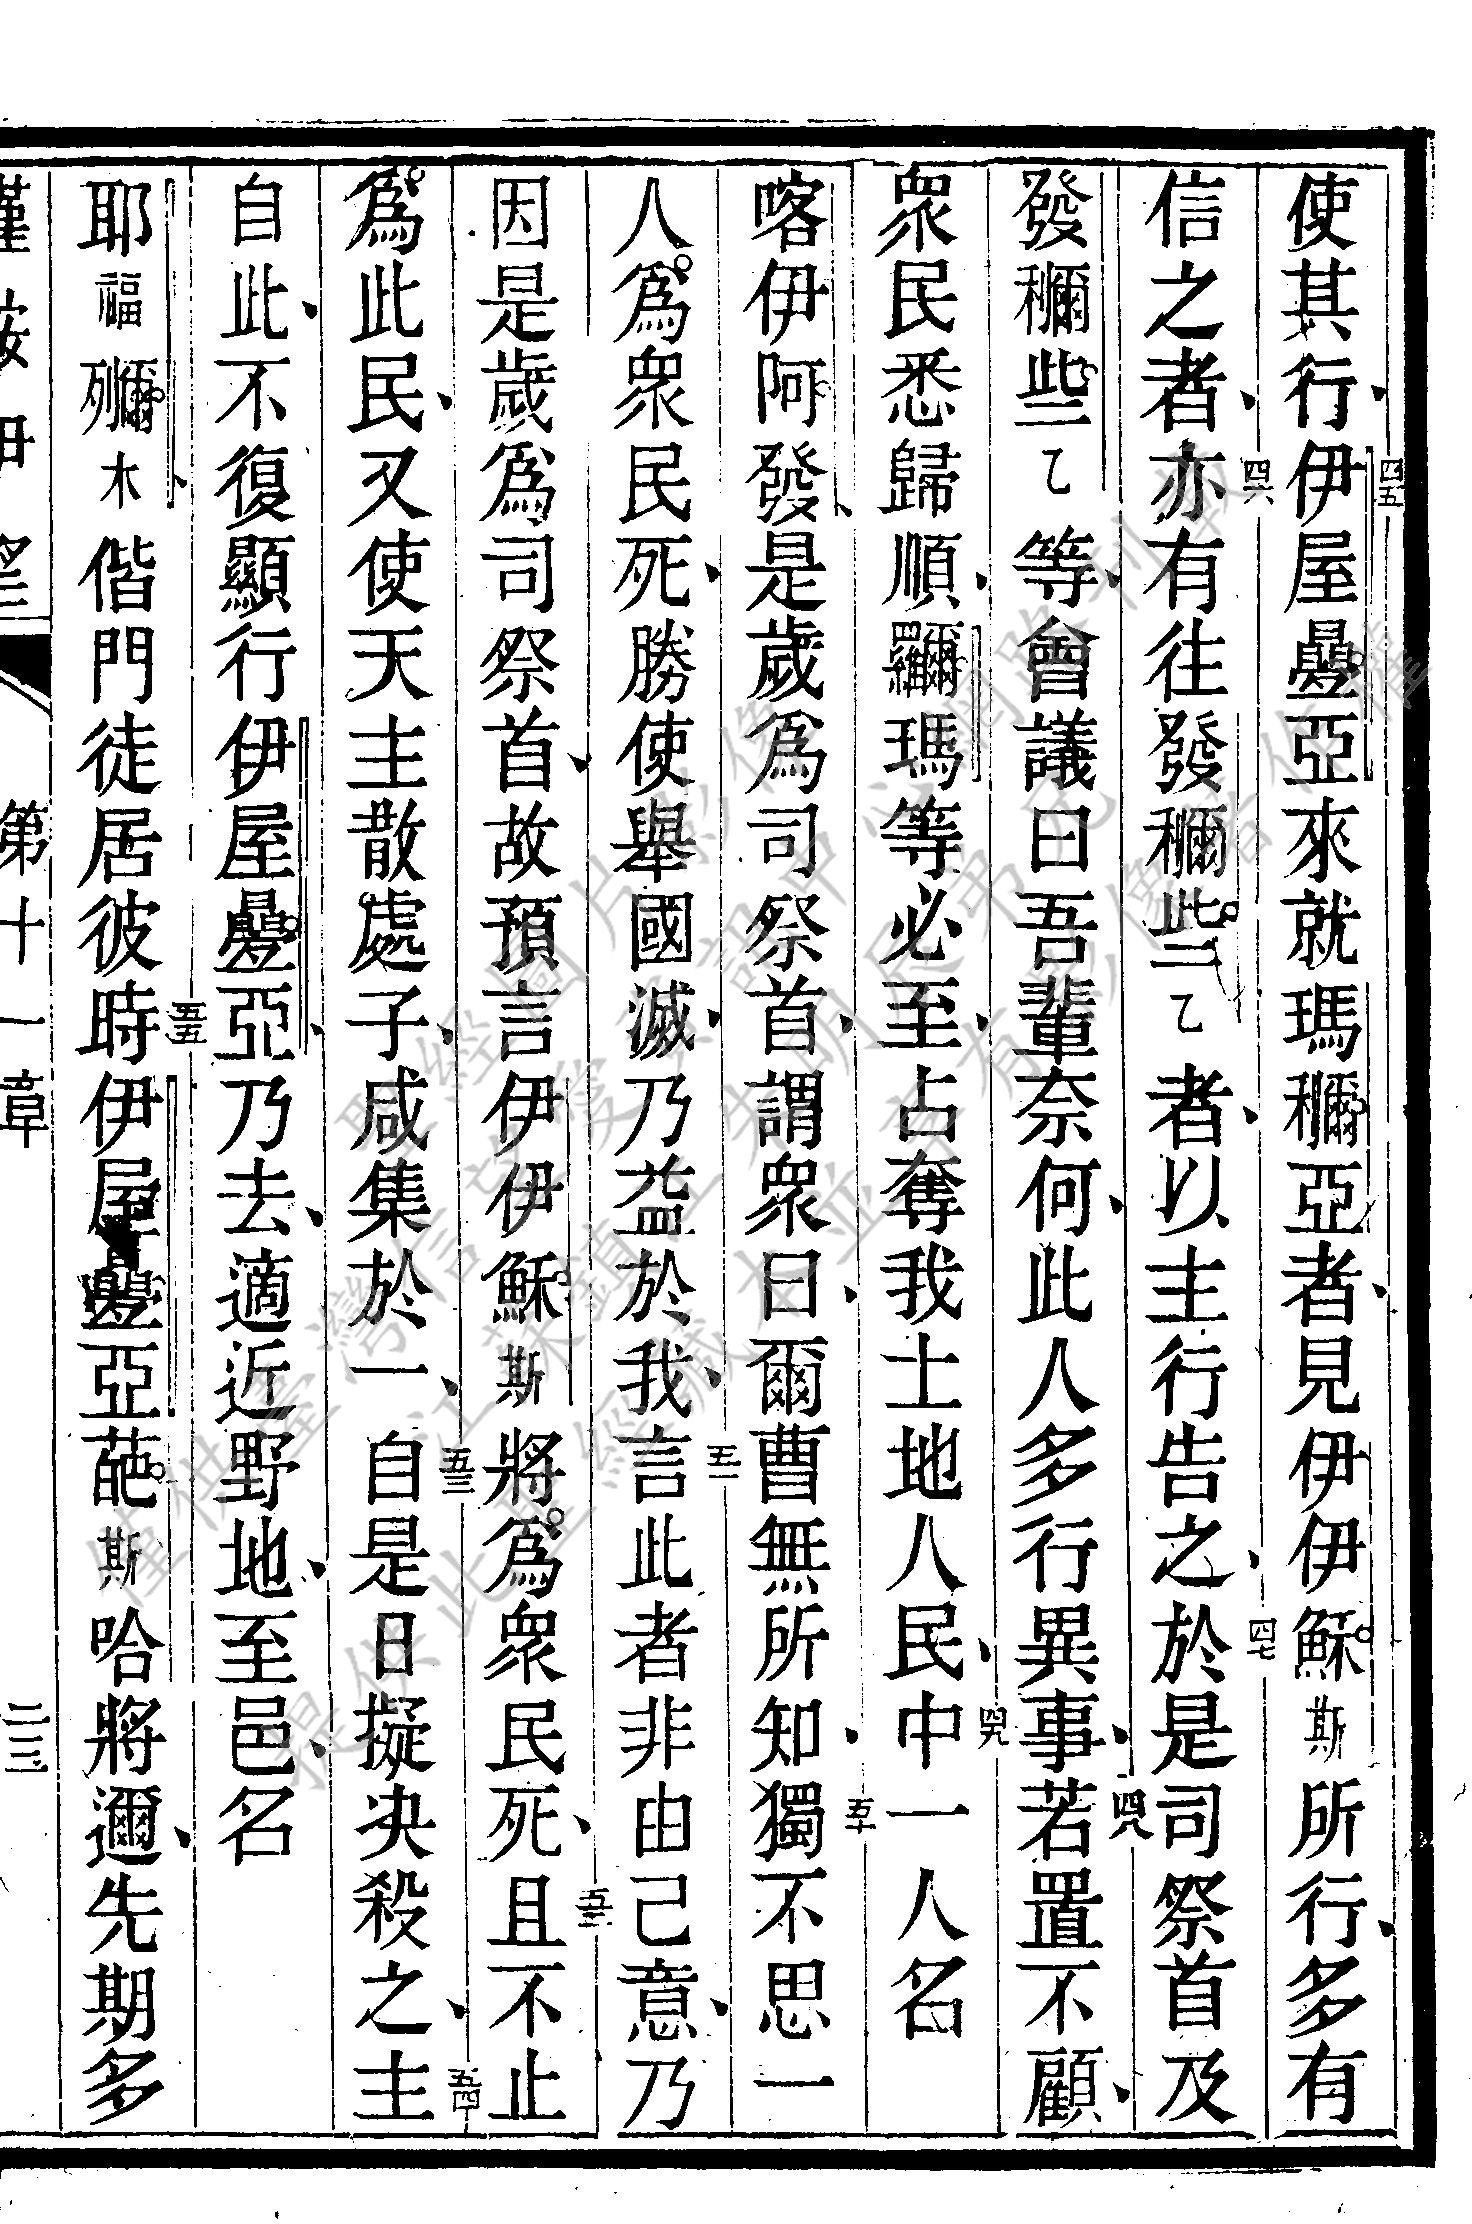 使其行、四五伊屋疊亞來就瑪𥝖亞者、見伊伊穌斯所行、多有
信之者、四六亦有往發𥝖些乙者、以主行告之、四七於是司祭首及
發𥝖些乙等、會議曰吾輩奈何、此人多行異事、四八若置不顧、
眾民悉歸順、羅爾瑪等必至、占奪我土地人民、四九中一人名
喀伊阿發、是歲爲司祭首、謂眾曰、爾曹無所知、五十獨不思一
人爲眾民死、勝使舉國滅、乃益於我、五一言此者非由己意、乃
因是歲爲司祭首、故預言伊伊穌斯將爲眾民死、五二且不止
爲此民、又使天主散處子、咸集於一、五三自是日擬決殺之、五四主
自此、不復顯行伊屋疊亞、乃去、適近野地、至邑、名
耶福列爾木、偕門徒居彼時、五五伊屋疊亞葩斯哈將邇、先期多
謹按伊望
第十一章
二三